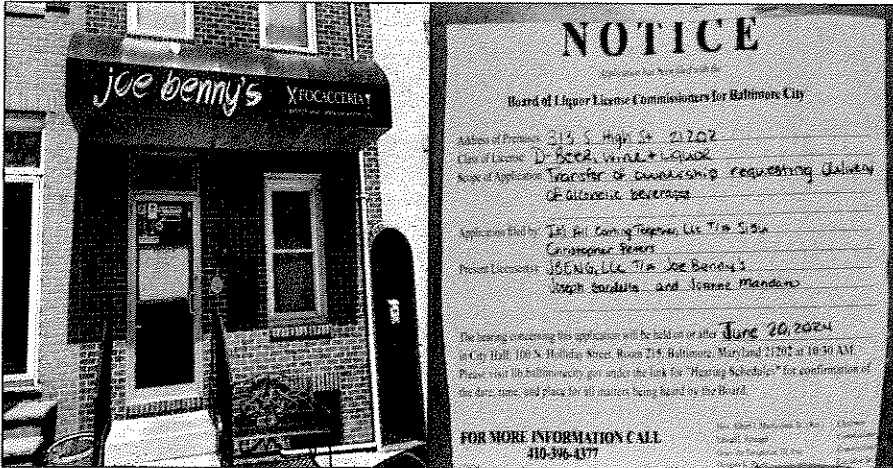 joe benny's
FOCACCERIA
NOTICE
Application has been filed with the
Board of Liquor License Commissioners for Baltimore City
Address of Premises: 313 S. High St 21202
Class of License: D- Beer, Wine + Liquor
Scope of Application: Transfer of ownership requesting delivery
of alcoholic beverage
Application filed by: It's All Coming Together, LLC T/A Sisu
Christopher Peters
Present Licensee(s): T/A Joe Benny's
Joseph and Joanne
The hearing concerning this application will be held on or after June 20, 2024
in City Hall, 100 N. Holliday Street, Room 215, Baltimore, Maryland 21202 at 10:30 AM.
Please visit llb.baltimorecity.gov under the link for "Hearing Schedules" for confirmation of
the date, time, and place for all matters being heard by the Board.
FOR MORE INFORMATION CALL
410-396-4377